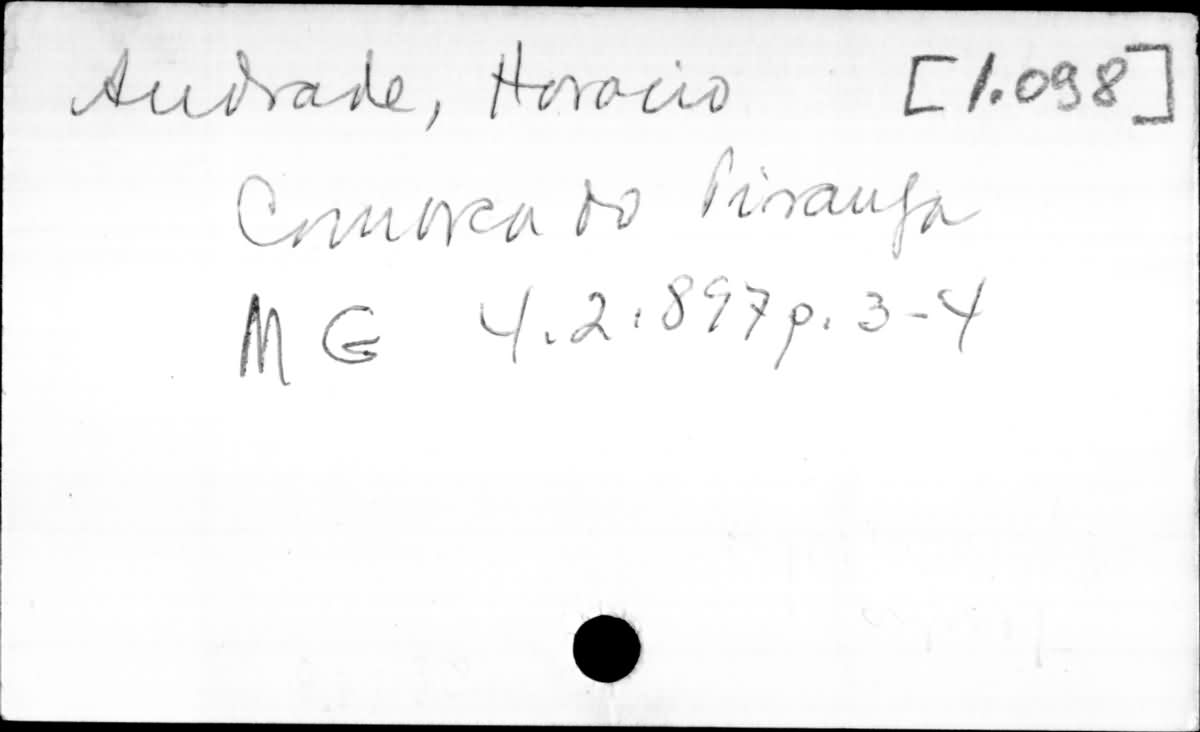 Andrade, Horacio [1.098]
Comarca do Piranga
MG 4.2.897 p. 3-4